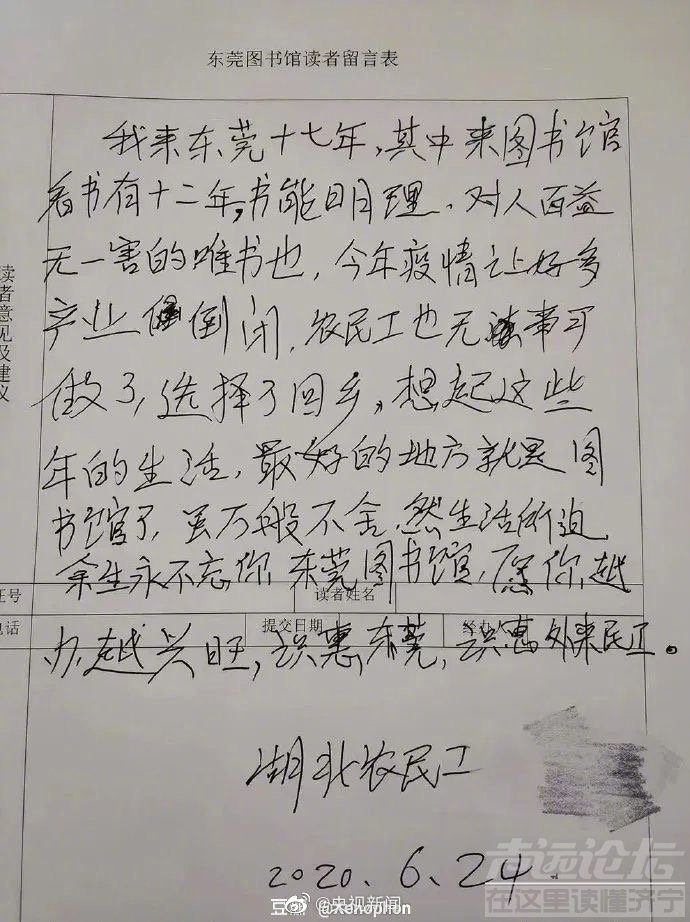 东莞图书馆读者留言表
我来东莞十七年,其中来图书馆
看书有十二年,书能明理,对人百益
无一害的唯书也,今年疫情让好多
产业倒闭,农民工也无事可
做了,选择了回乡,想起这些
年的生活,最好的地方就是图
书馆了,虽万般不舍,然生活所迫
余生永不忘你,东莞图书馆,愿你越
办越兴旺,识惠东莞,识惠外来民工。
读者意见及建议
证号
读者姓名
电话
提交日期
经办人
湖北农民工
2020.6.24
豆瓣 @Xenophon
@央视新闻
志远论坛
在这里读懂济宁